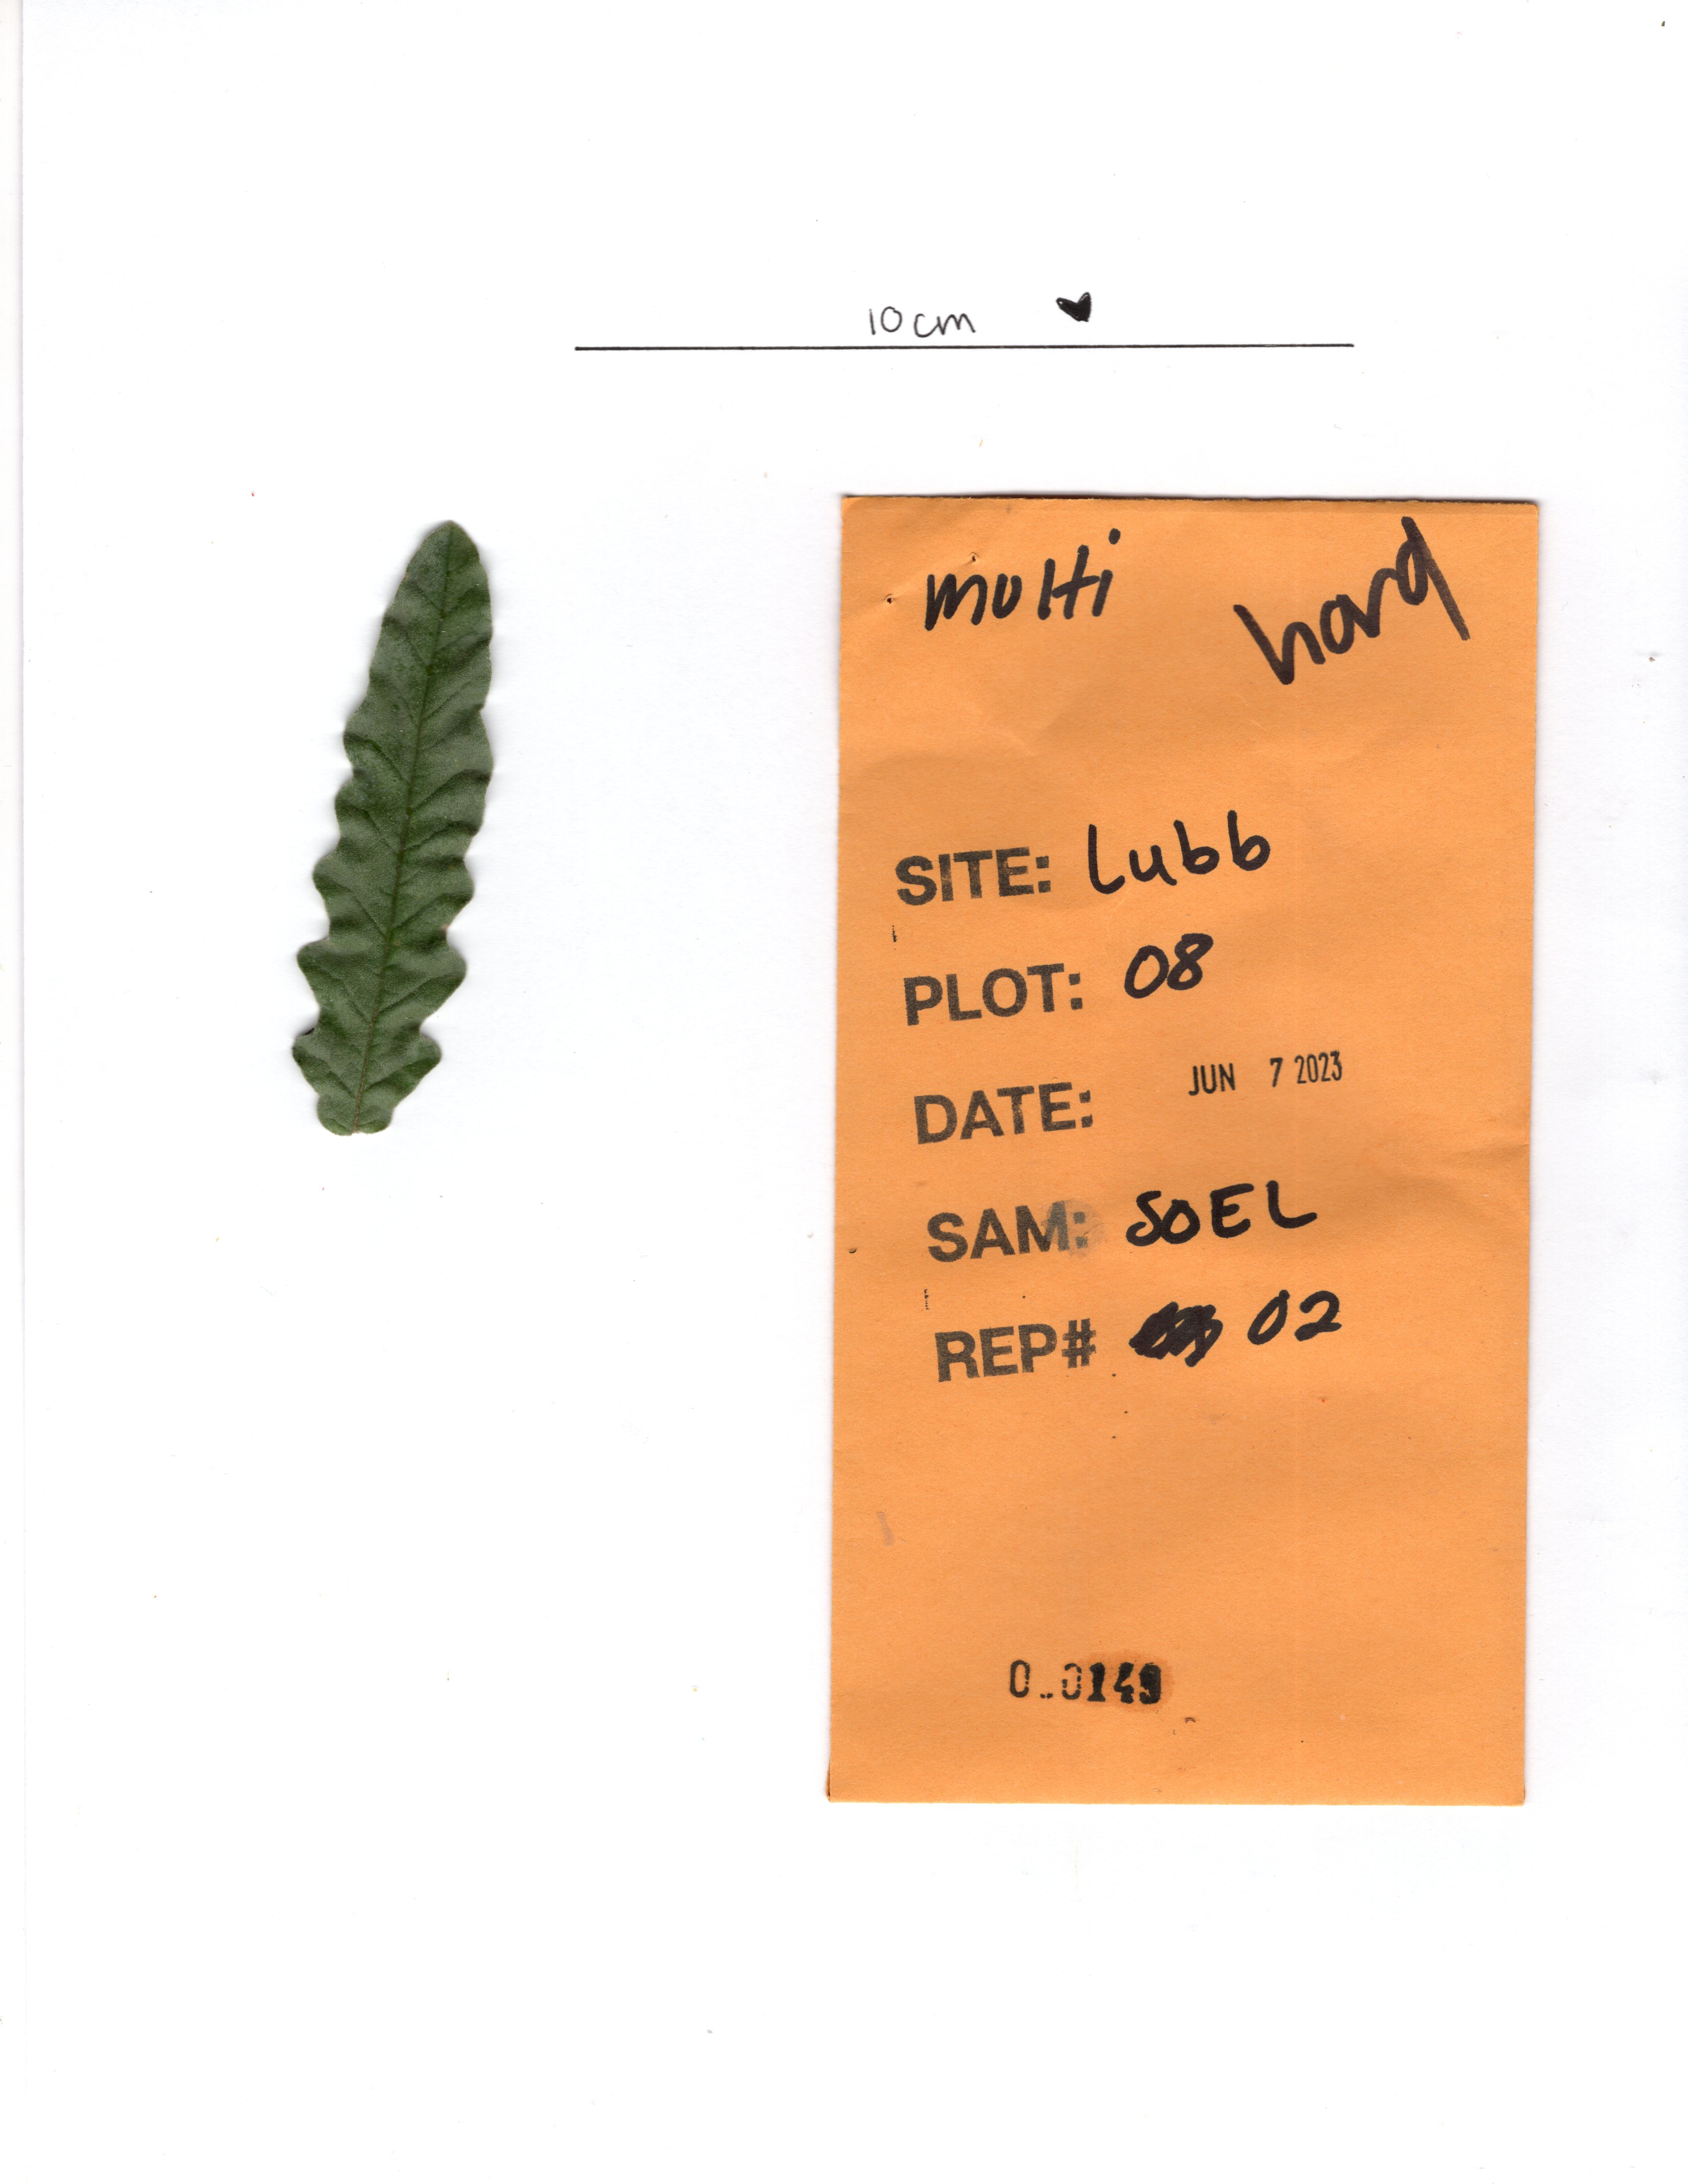 10cm
multi
hard
SITE: Lubb
PLOT: 08
DATE: JUN 7 2023
SAM: SOEL
REP# 02
0..0149